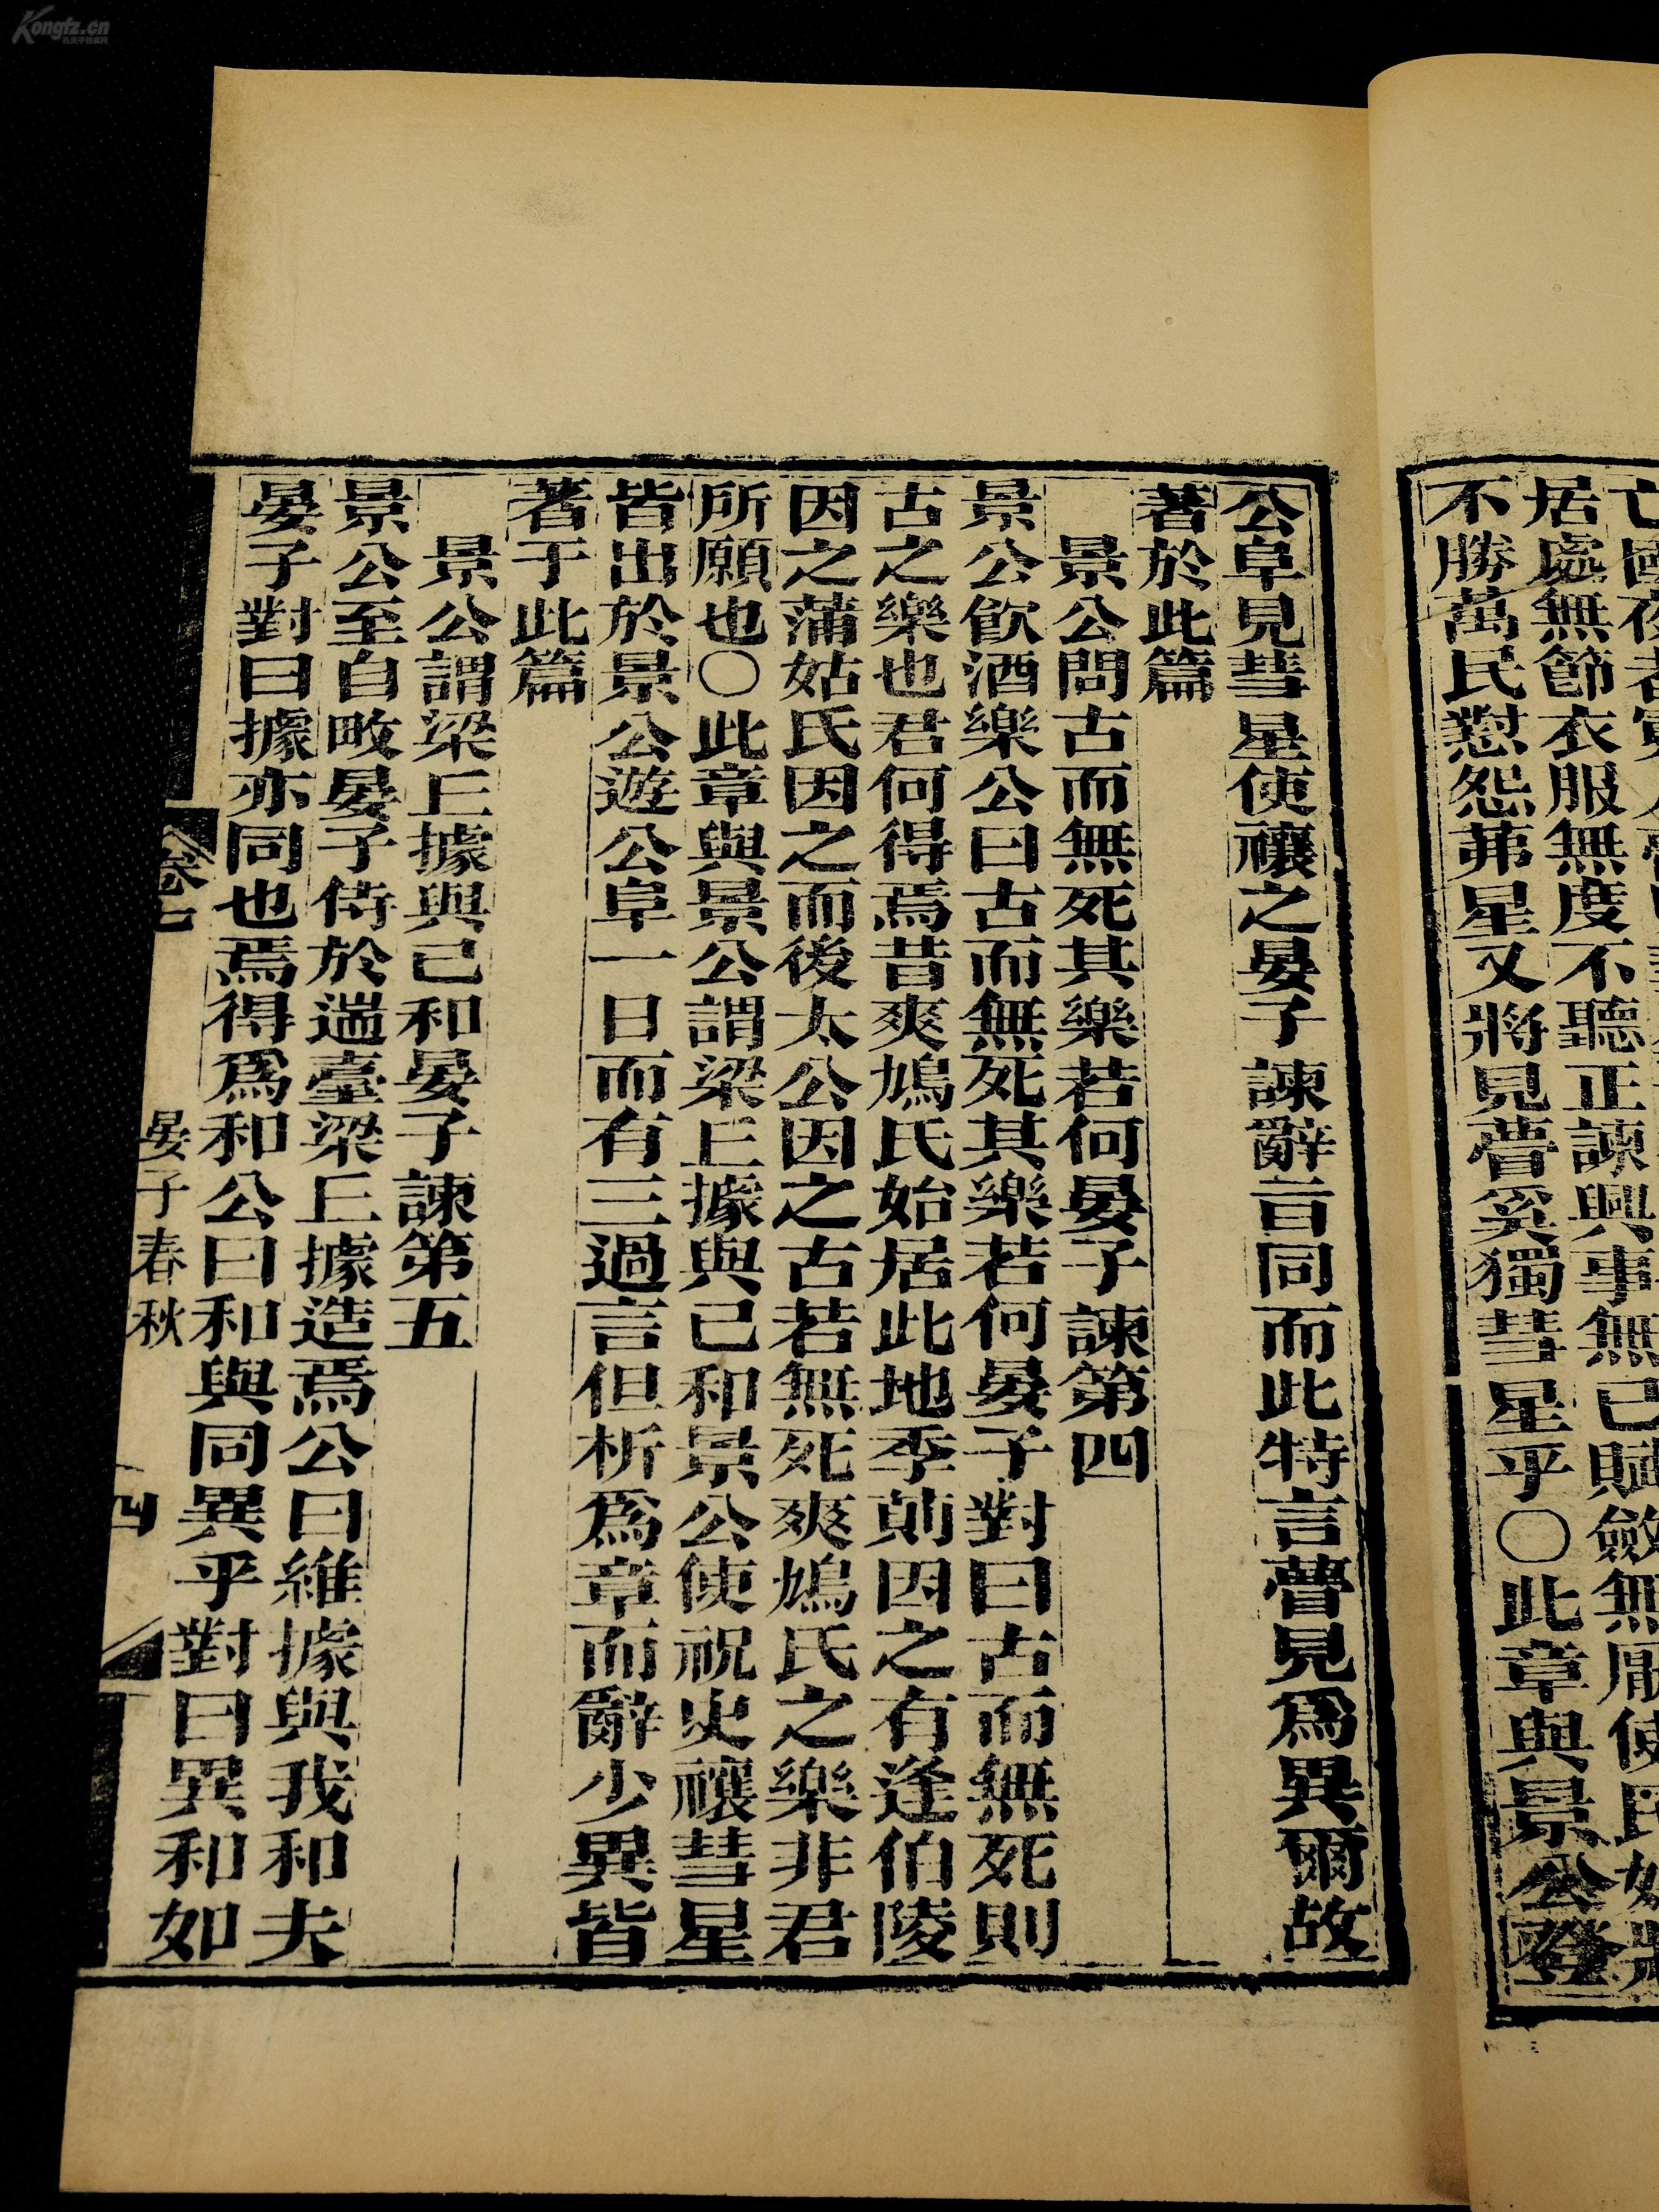 Kongfz.cn
居處無節衣服無度不聽正諫興事無已賦斂無厭使民如將
不勝萬民懟怨茀星又將見瞢奚獨彗星乎○此章與景公登
公阜見彗星使禳之晏子諫辭旨同而此特言瞢見爲異爾故
著於此篇
景公問古而無死其樂若何晏子諫第四
景公飮酒樂公曰古而無死其樂若何晏子對曰古而無死則
古之樂也君何得焉昔爽鳩氏始居此地季萴因之有逢伯陵
因之蒲姑氏因之而後太公因之古若無死爽鳩氏之樂非君
所願也○此章與景公謂梁丘據與己和景公使祝史禳彗星
皆出於景公遊公阜一日而有三過言但析爲章而辭少異皆
著于此篇
景公謂梁丘據與己和晏子諫第五
景公至自畋晏子侍於遄臺梁丘據造焉公曰維據與我和夫
晏子對曰據亦同也焉得爲和公曰和與同異乎對曰異和如
卷七
晏子春秋
四